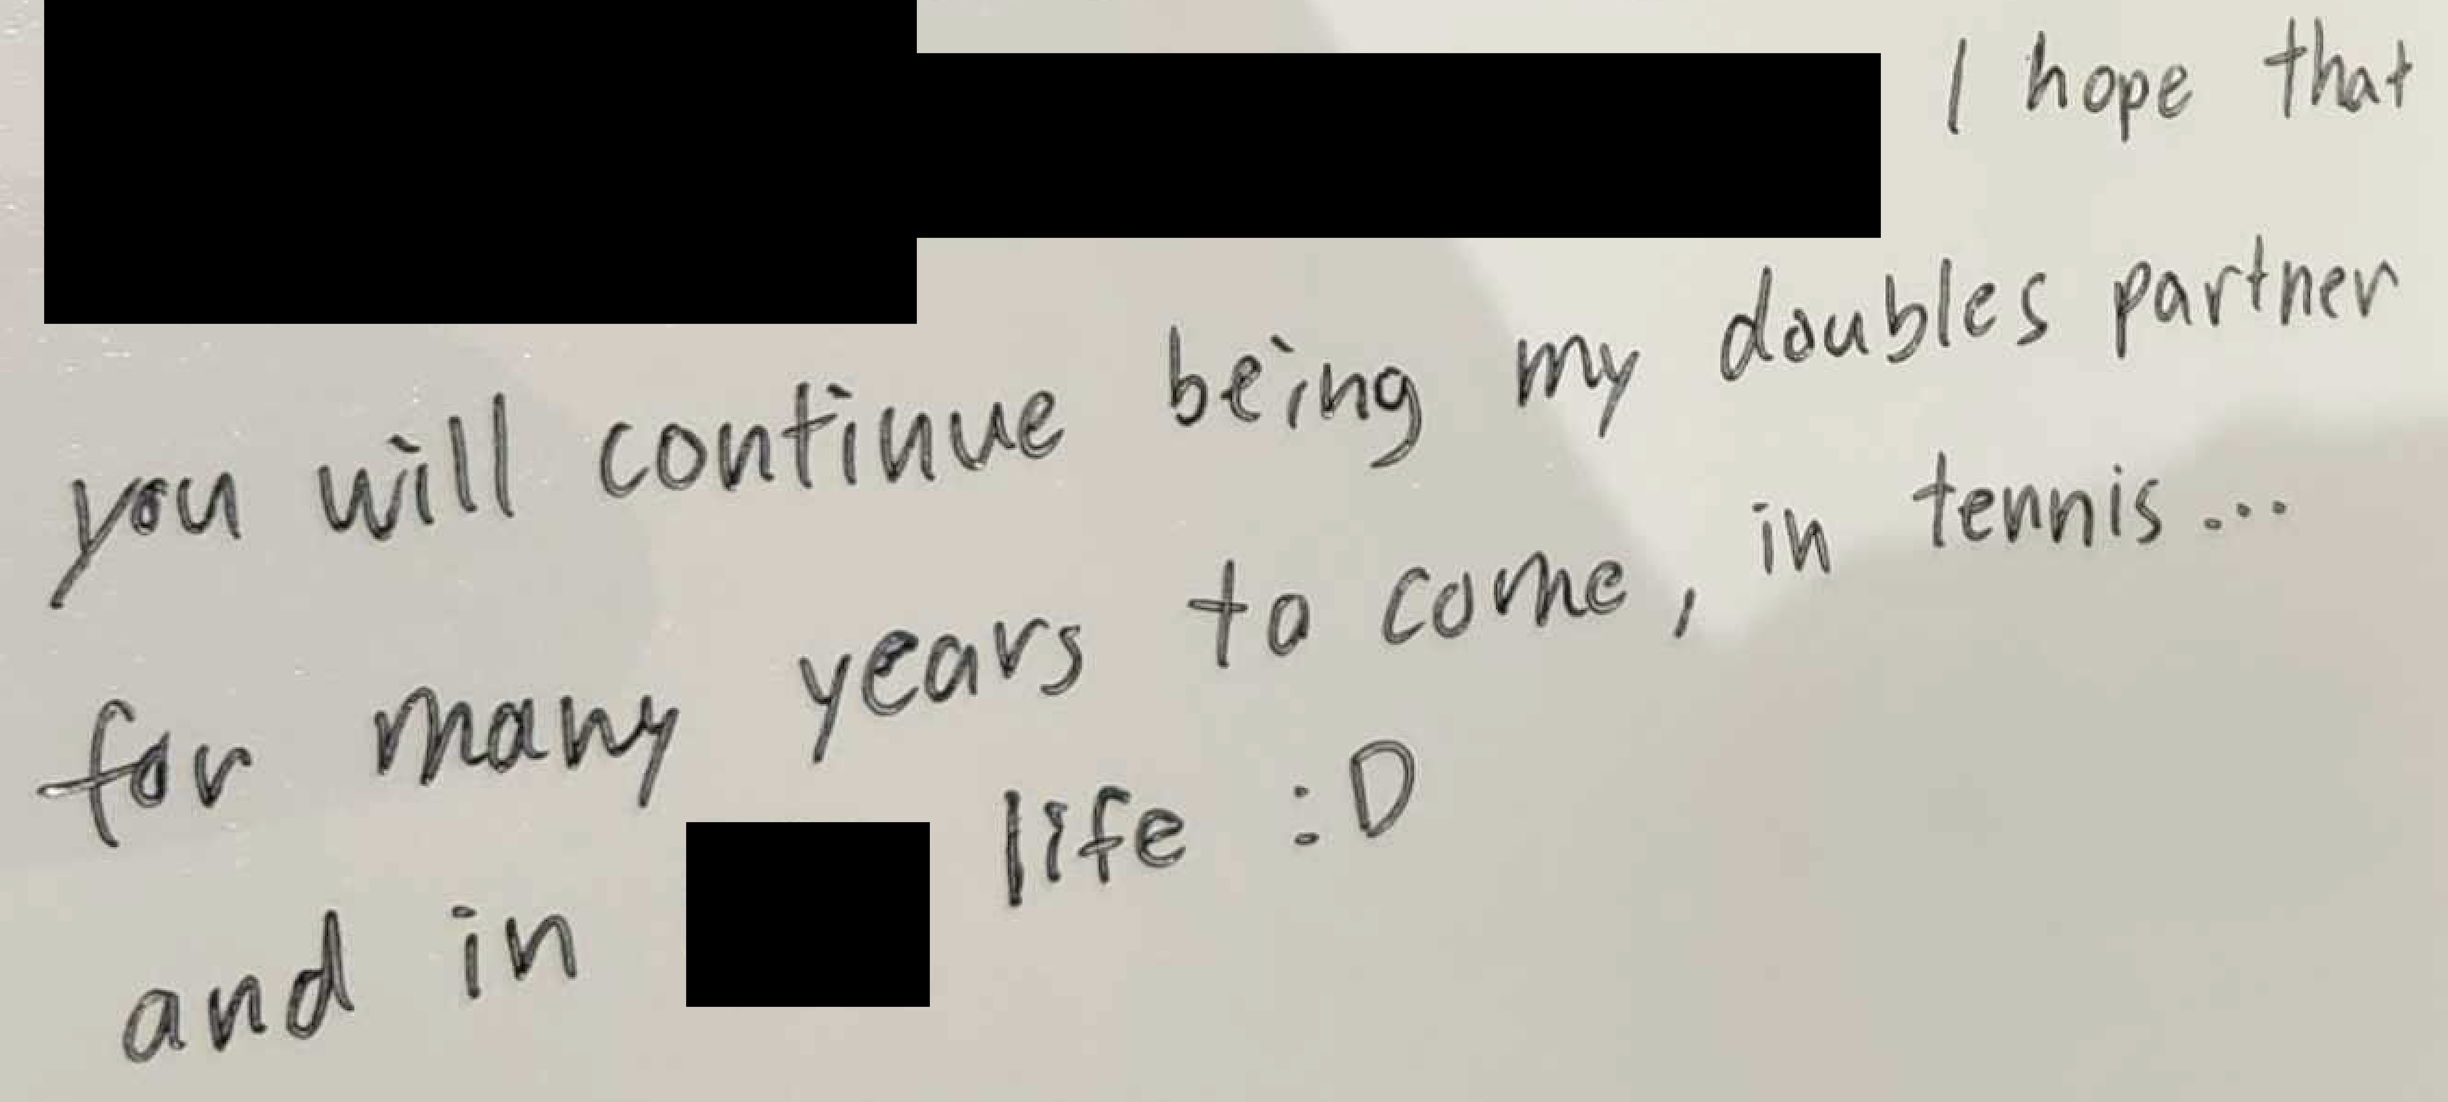 I hope that
you will continue being my doubles partner
for many years to come, in tennis...
and in life :D